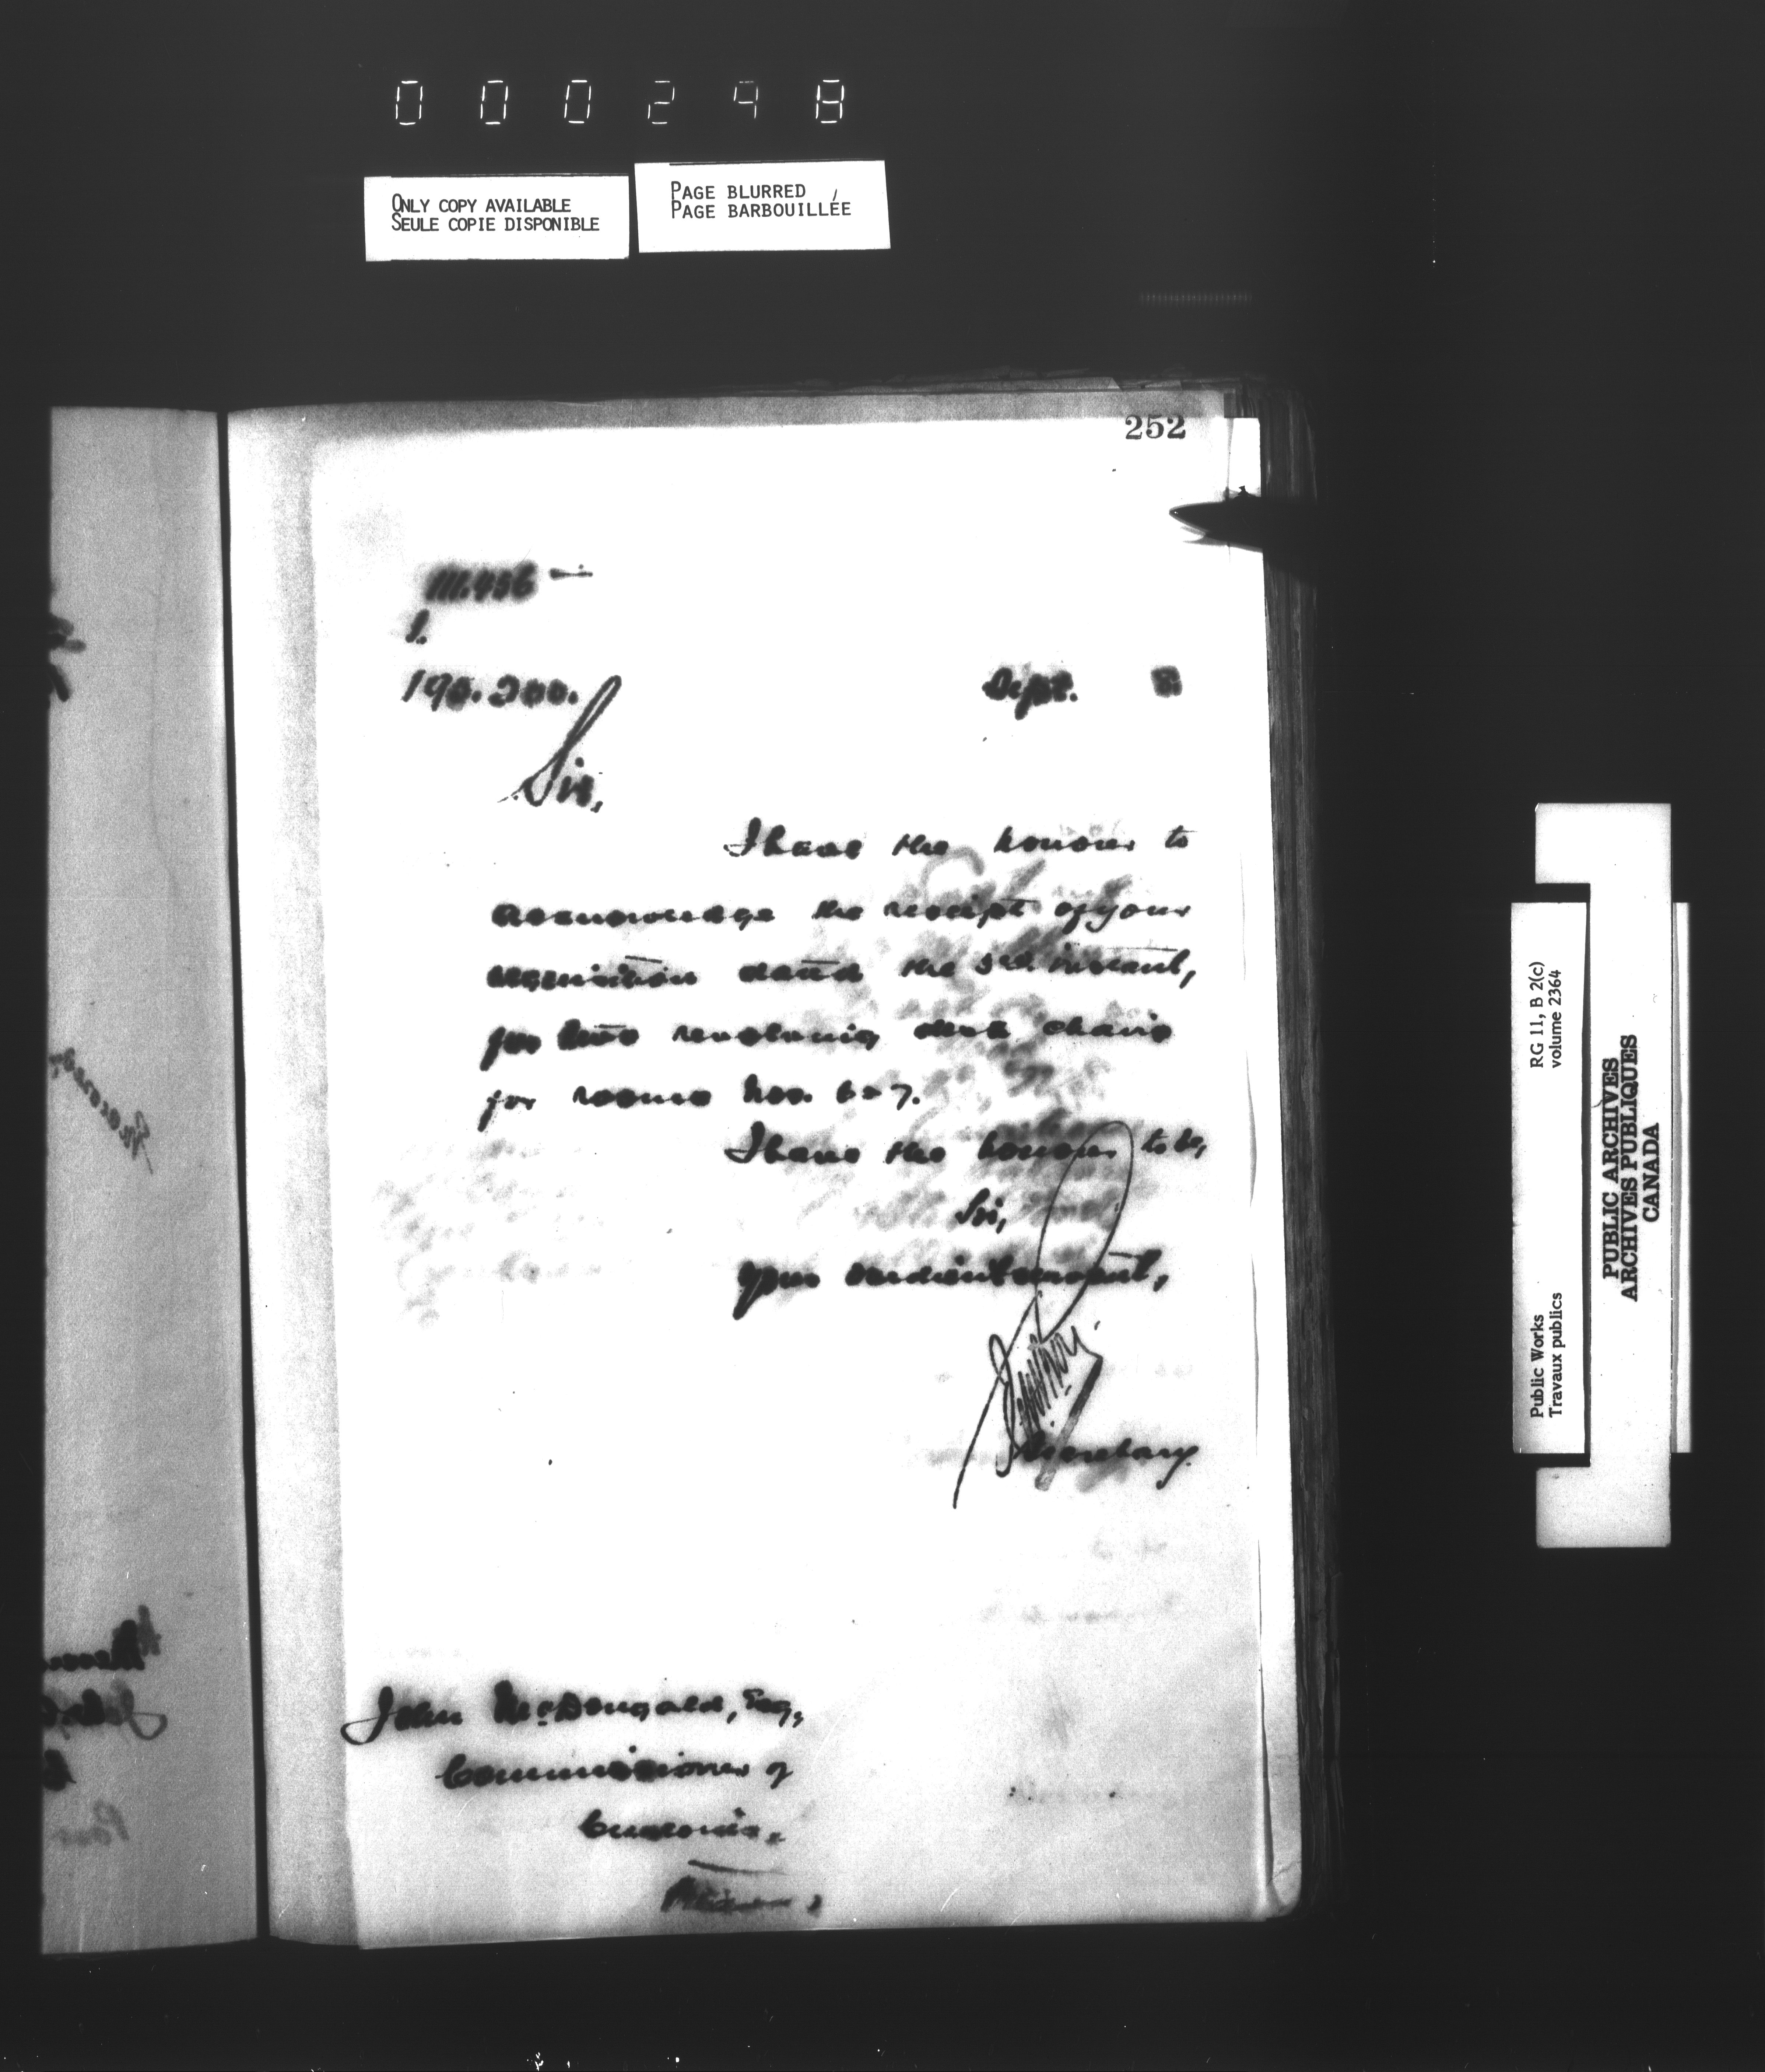 000298
ONLY COPY AVAILABLE
SEULE COPIE DISPONIBLE
PAGE BLURRED
PAGE BARBOUILLÉE
252
111.456
S.
190.200.
Sept.
Sir,
I have the honour to
acknowledge the receipt of your
requisition dated the 3rd instant,
for two revolving desk chairs
for rooms Nos. 6 & 7.
I have the honour to be,
Sir,
Your obedient servant,
Secretary.
John McDougald, Esq,
Commissioner of
Customs,
RG 11, B 2(c)
volume 2364
Public Works
Travaux publics
PUBLIC ARCHIVES
ARCHIVES PUBLIQUES
CANADA